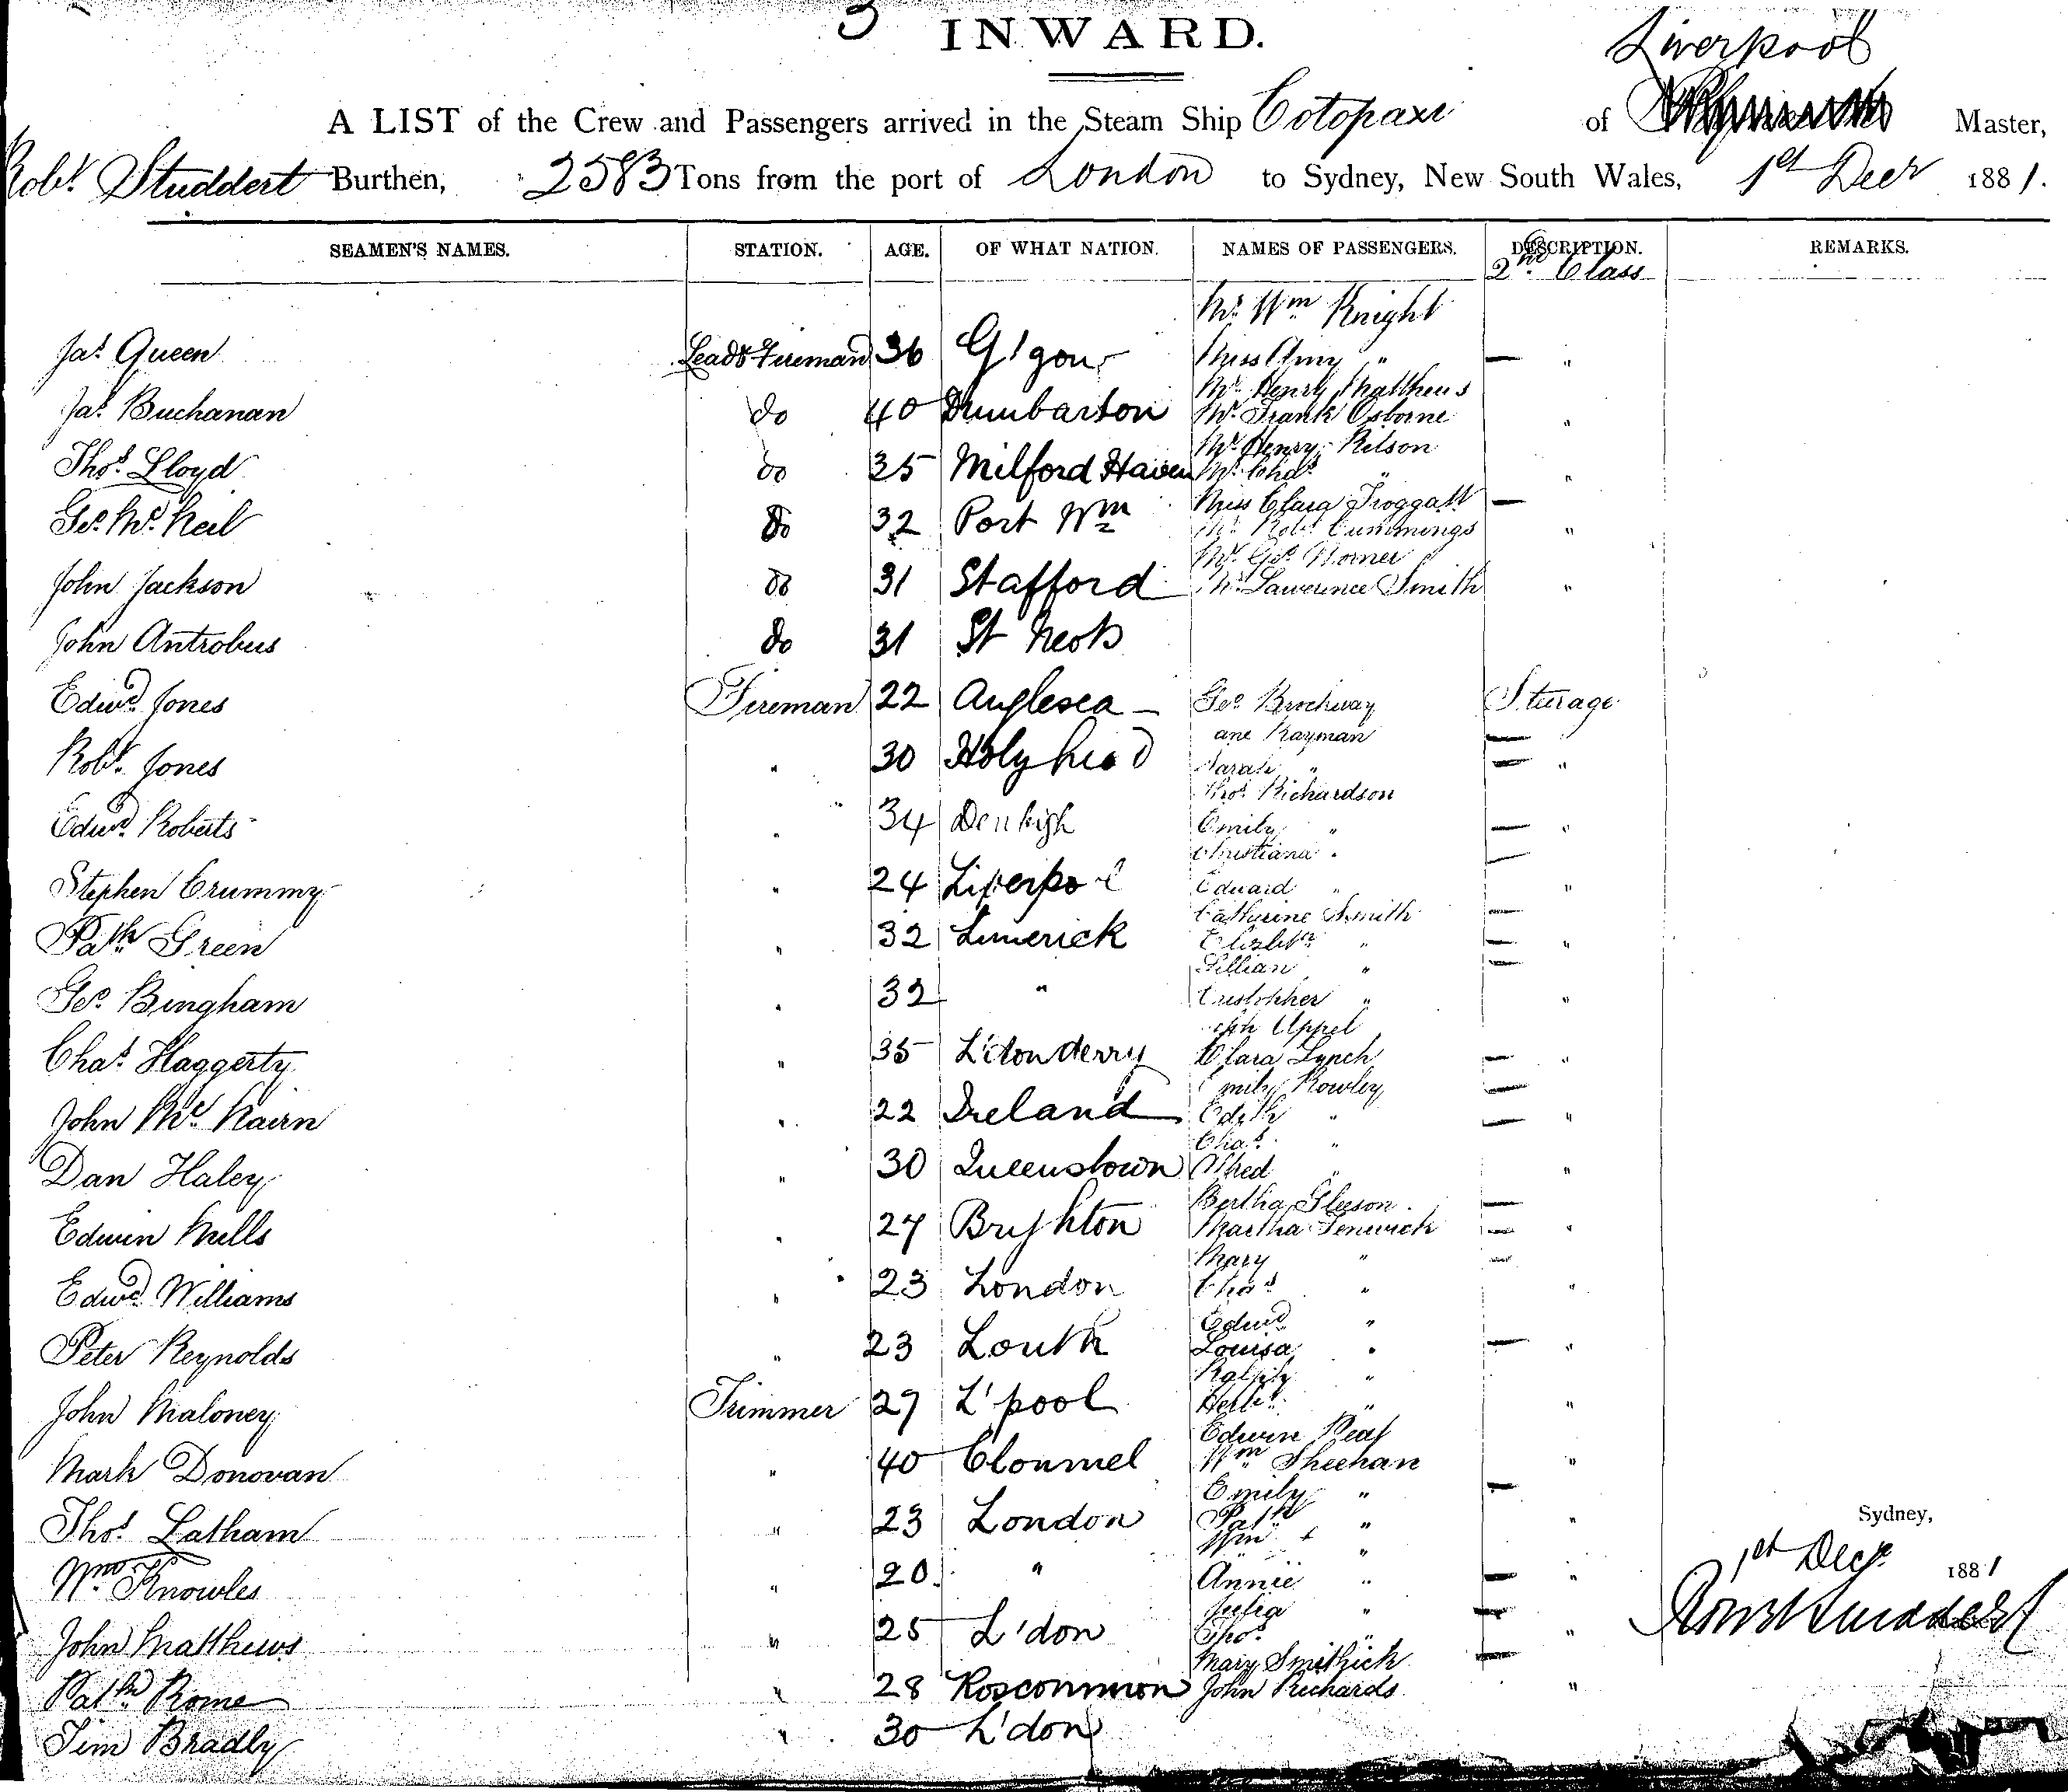 3
INWARD.
Liverpool
A LIST of the Crew and Passengers arrived in the Steam Ship Cotopaxi of Master,
Robt. Studdert Burthen, 2583 Tons from the port of London to Sydney, New South Wales, 1st Decr 1881.
SEAMEN'S NAMES. STATION. AGE. OF WHAT NATION. NAMES OF PASSENGERS. DESCRIPTION. REMARKS.
2nd Class
Mr. Wm Knight
Jas. Queen Leadg Fireman 36 G'gow Miss Amy " — "
Mr. Henry Matthews
Jas. Buchanan do 40 Dumbarton Mr. Frank Osborne "
Mr. Henry Rilson
Thos. Lloyd do 35 Milford Haven Mr. Chas. " "
Miss Clara Froggatt —
Geo. Mc. Neil do 32 Port Wm Mr. Robt. Cummings "
Mr. Geo. Horner
John Jackson do 31 Stafford Mr. Lawerence Smith "
John Antrobus do 31 St Neots
Edwd. Jones Fireman 22 Anglesea — Geo. Brockway Sturage
ane Rayman —
Robt. Jones " 30 Holyhead Sarah " — "
Thos. Richardson
Edwd. Roberts " 34 Denbigh Emily " — "
Christiana " —
Stephen Crummy " 24 Liverpool Eduard " "
Catherine Smith —
Patk Green " 32 Limerick Elizbth " — "
Lillian " —
Geo. Bingham " 32 " Cristopher " "
Uppel
Chas. Haggerty " 35 L'donderry Clara Lynch — "
Emily Rowley —
John Mc. Nairn " 22 Ireland Edith " — "
Chas. "
Dan Haley " 30 Queenstown Alfred " "
Bertha Gleeson —
Edwin Mills " 27 Bryhton Martha Fenwick — "
Mary " —
Edwd. Williams " 23 London Chas " "
Edwd "
Peter Reynolds " 23 Louth Louisa " — "
Ralph "
John Maloney Trimmer 27 L'pool Herbt. " "
Edwin Peaf
Mark Donovan " 40 Clonmel Wm Sheehan "
Emily " —
Thos. Latham " 23 London Patk " "
Wm + "
Wm. Knowles " 20 " Annie " — "
Julia " —
John Matthews " 25 L'don Thos. " "
Mary Smithick —
Patk. Rome " 28 Roscommon John Richards "
Tim Bradly " 30 L'don
Sydney,
1st Decr 1881